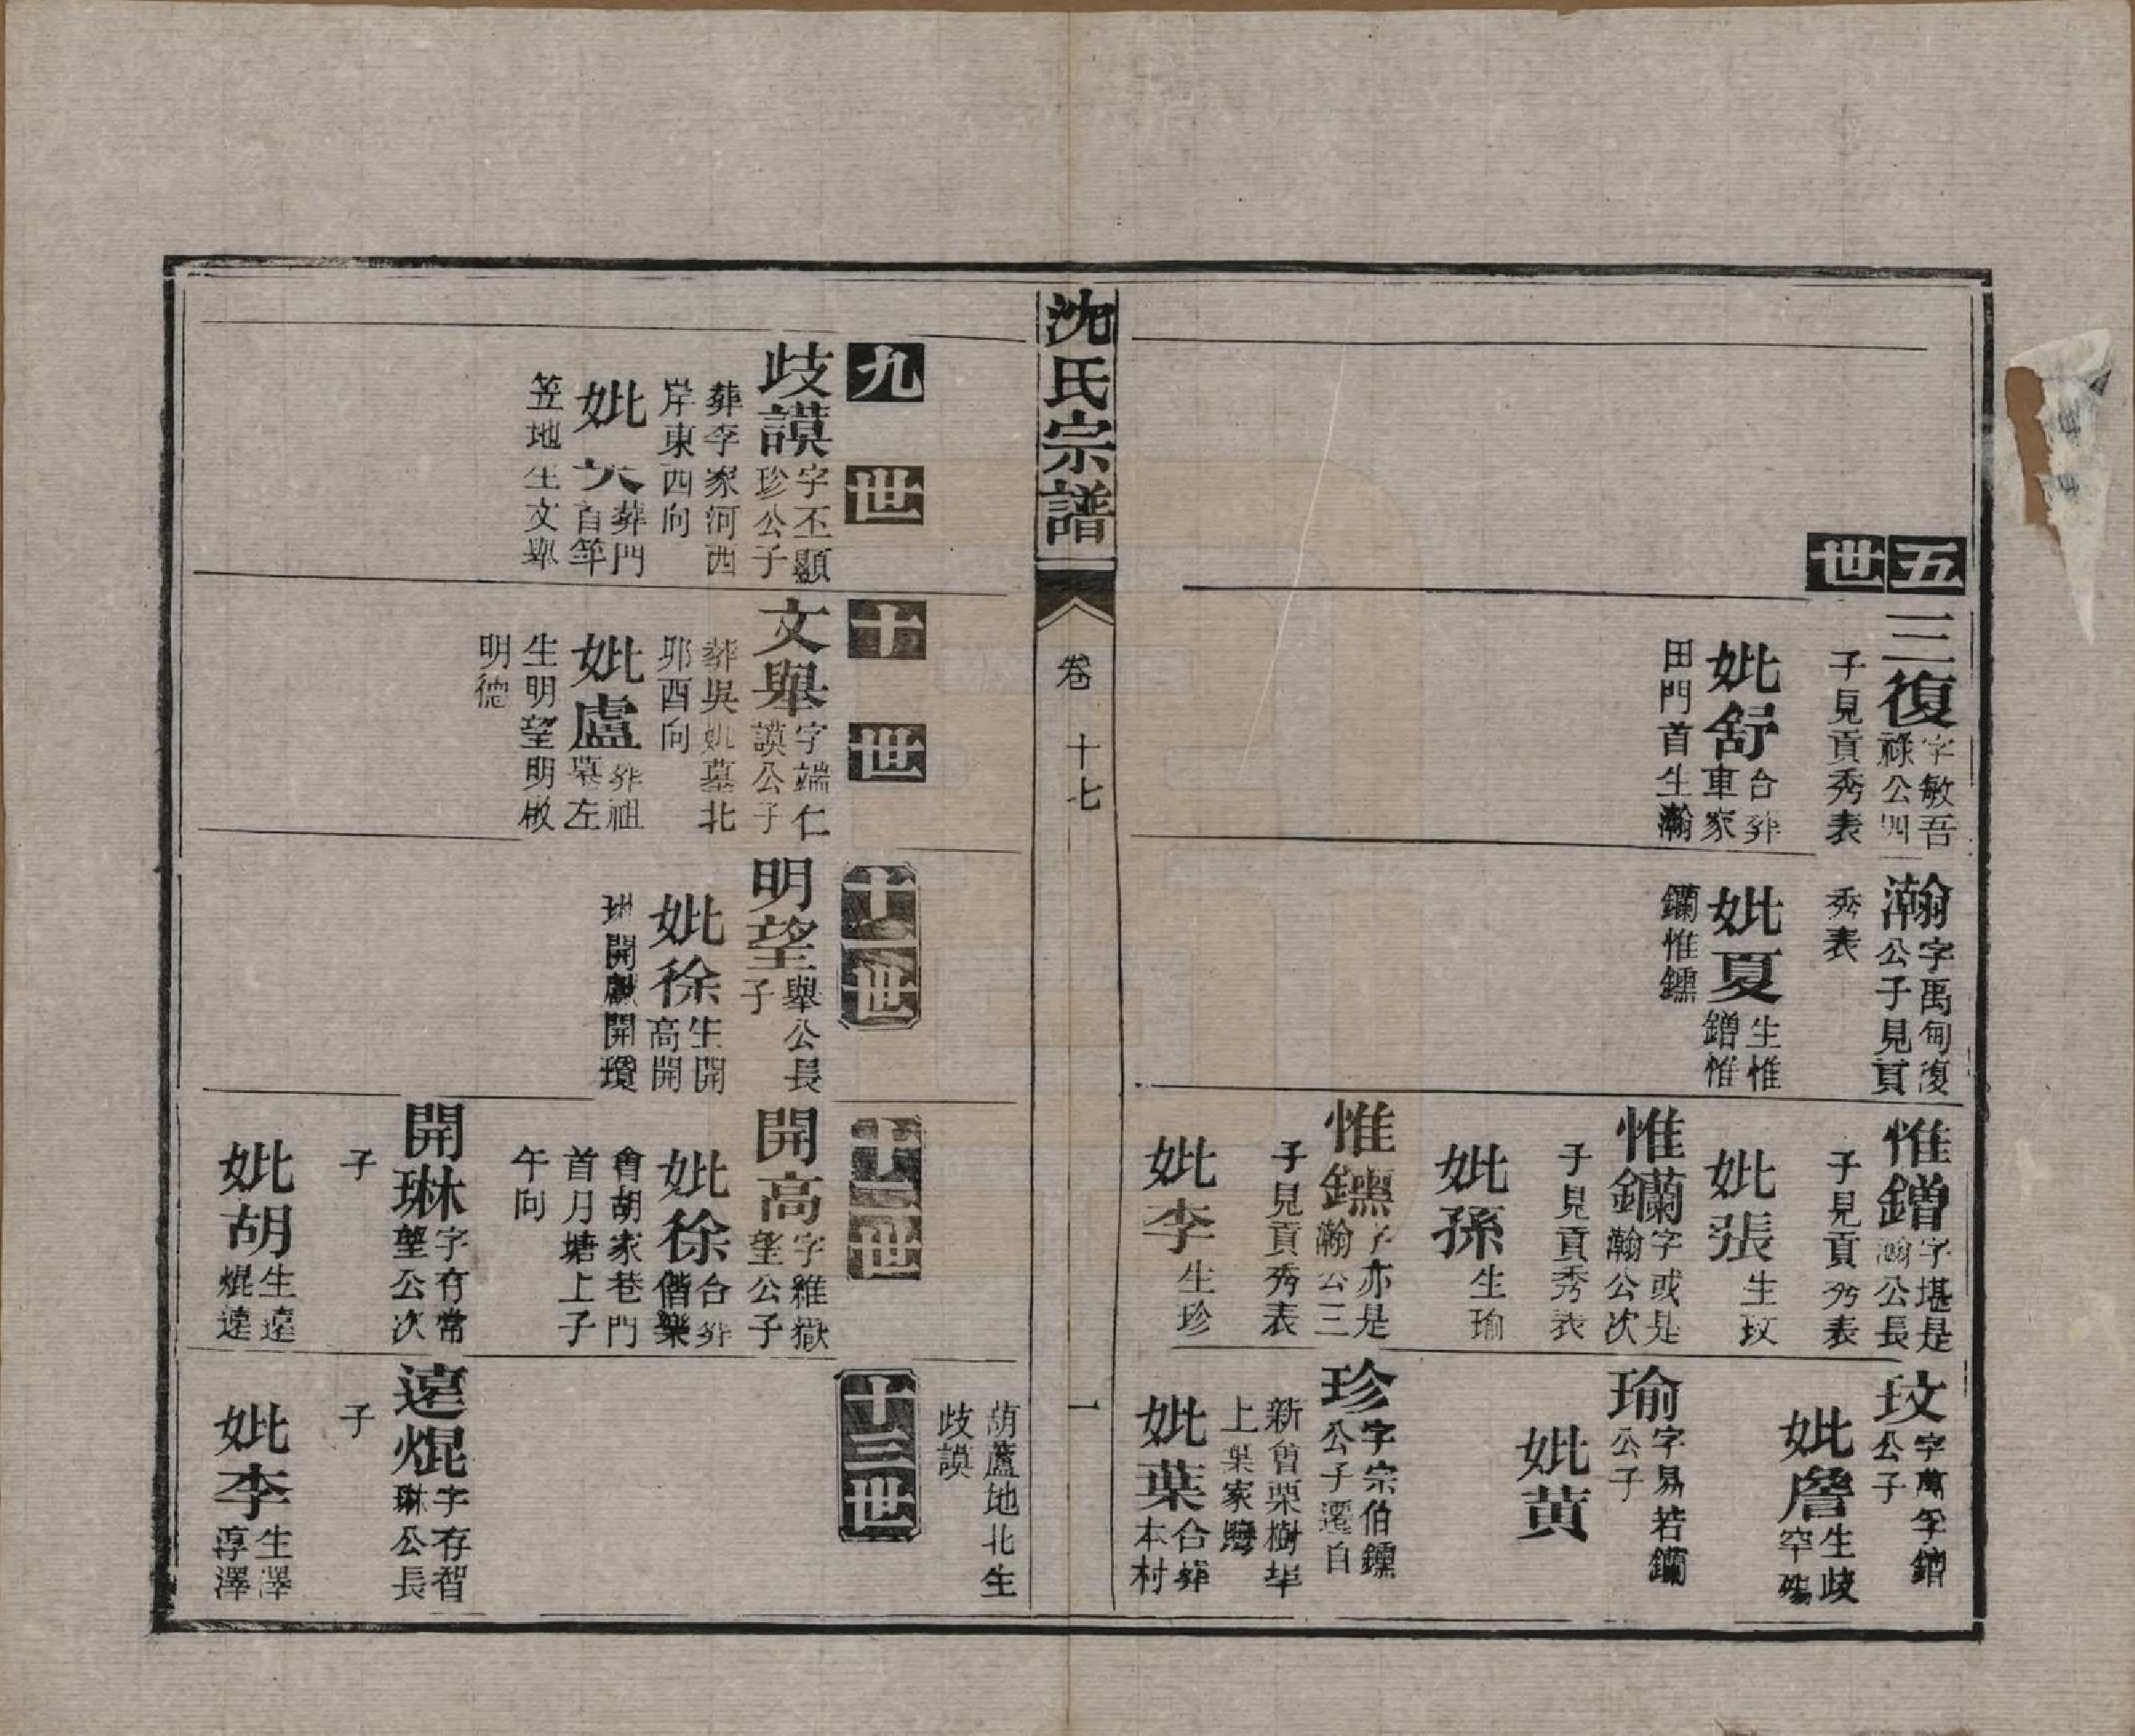 五世
三復字敏吾
祿公四
子見貢秀表
妣舒合葬
車家
田門首生瀚
瀚字禹甸復
公子見貢
秀表
妣夏生惟
鏳惟
鑭惟鑂
惟鏳字堪是
瀚公長
子見貢秀表
妣張生玟
惟鑭字或是
瀚公次
子見貢秀表
妣孫生瑜
惟字亦是
瀚公三
子見貢秀表
妣李生珍
玟字萬孚鏳
公子
妣詹生歧
罕殤
瑜字易若鑭
公子
妣黄
珍字宗伯
公子遷自
新會栗樹埠
上葉家
妣葉合葬
本村
沈氏宗譜
卷十七
一
葫蘆地北生
歧謨
九世
歧謨字丕顯
珍公子
葬李家河西
岸東西向
妣葬門
首竿
笠地生文舉
十世
文舉字端仁
謨公子
葬吳妣墓北
邜酉向
妣盧葬祖
墓左
生明望明啟
明德
十一世
明望舉公長
子
妣徐生開
高開
琳開開瓚
十二世
開高字維嶽
望公子
妣徐合葬
偕樂
會胡家巷門
首月塘上子
午向
開琳字存常
望公次
子
妣胡生遠
焜遠
十三世
遠焜字存智
琳公長
子
妣李生澤
淳澤